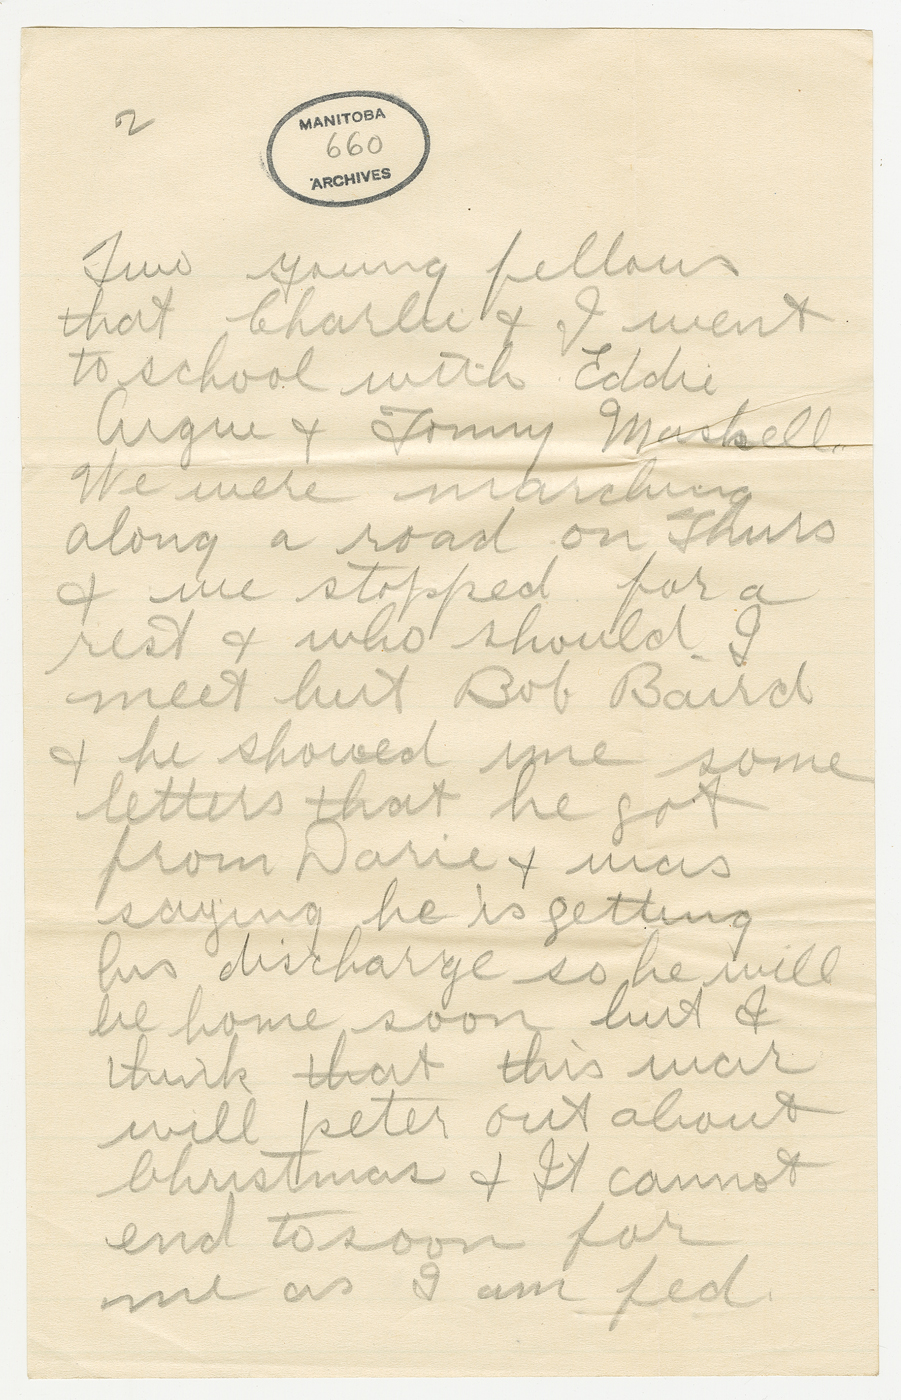 2
MANITOBA
660
ARCHIVES
Two young fellows
that Charlie & I went
to school with Eddie
Argue & Tommy Maskell.
We were marching
along a road on Thurs
& we stopped for a
rest & who should I
meet but Bob Baird
& he showed me some
letters that he got
from Darie & was
saying he is getting
his discharge so he will
be home soon but I
think that this war
will peter out about
Christmas & It cannot
end to soon for
me as I am fed